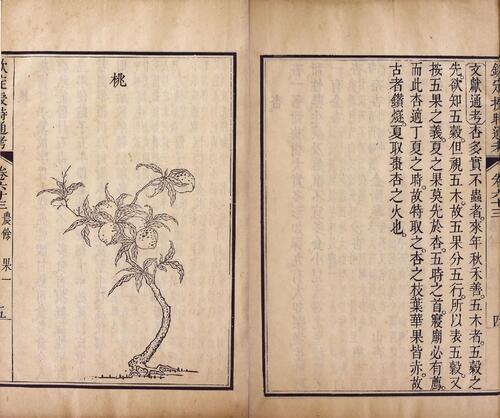 文獻通考杏多實不蟲者。來年秋禾善。五木者。五穀之
先。欲知五穀。但視五木。故五果分五行。所以表五穀。又
按五果之義。夏之果莫先於杏。五時之首。寢廟必有薦。
而此杏適丁夏之時。故特取之。杏之枝葉華果皆赤。故
古者鑽燧。夏取棗杏之火也。
桃
欽定授時通考 卷六十三 農餘 果一 五